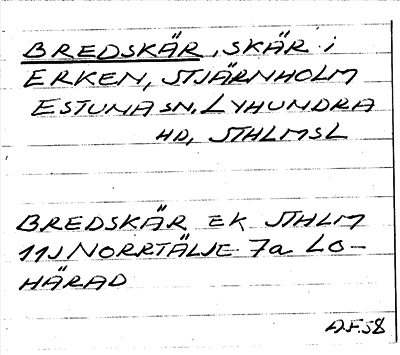 BREDSKÄR, SKÄR i
ERKEN, STJÄRNHOLM
ESTUNA SN. LYHUNDRA
HD, STHLMSL
BREDSKÄR EK STHLM
11J NORRTÄLJE 7a LO-
HÄRAD
A.F.58